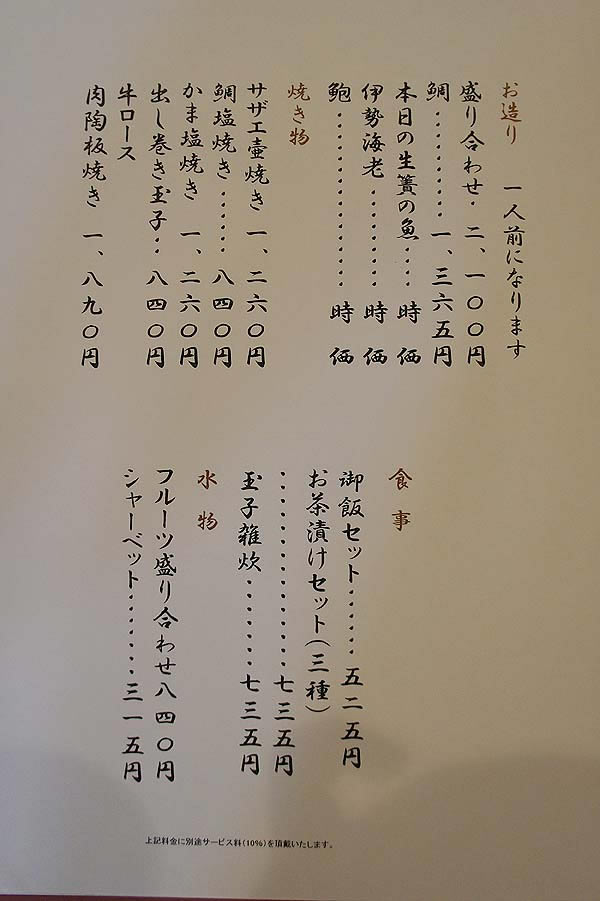 お造り 一人前になります
盛り合わせ・ 二、一〇〇円
鯛・・・・・・・・ 一、三六五円
本日の生簀の魚・・・・ 時価
伊勢海老・・・・・・・・ 時価
鮑・・・・・・・・・・・・・・ 時価
焼き物
サザエ壷焼き 一、二六〇円
鯛塩焼き・・・・・・ 八四〇円
かま塩焼き 一、二六〇円
出し巻き玉子・・ 八四〇円
牛ロース
肉陶板焼き 一、八九〇円
食事
御飯セット・・・・・・五二五円
お茶漬けセット(三種)
・・・・・・・・・・・・・・・七三五円
玉子雑炊・・・・・・・・七三五円
水物
フルーツ盛り合わせ八四〇円
シャーベット・・・・・・・三一五円
上記料金に別途サービス料(10%)を頂戴いたします。